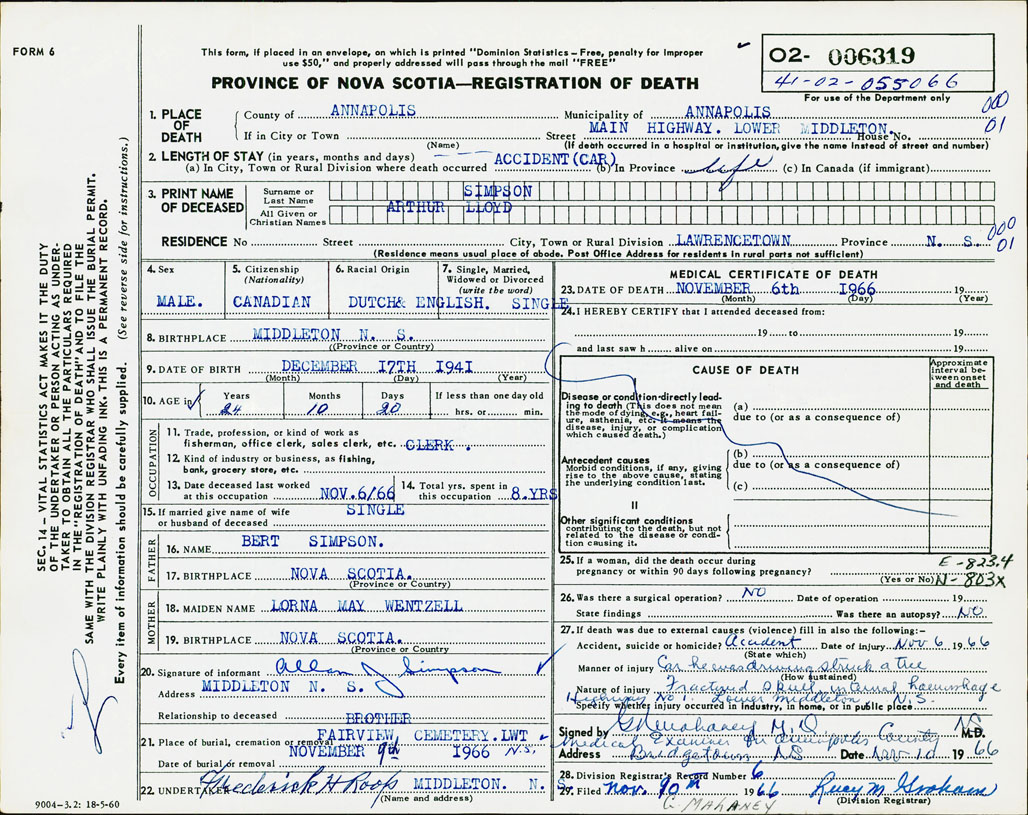 FORM 6
This form, if placed in an envelope, on which is printed "Dominion Statistics – Free, penalty for improper
use $50," and properly addressed will pass through the mail "FREE"
PROVINCE OF NOVA SCOTIA—REGISTRATION OF DEATH
02- 006319
41-02-055066
For use of the Department only
000
01
1. PLACE OF DEATH
County of ANNAPOLIS Municipality of ANNAPOLIS
If in City or Town Street MAIN HIGHWAY. LOWER MIDDLETON. House No.
(Name) (If death occurred in a hospital or institution, give the name instead of street and number)
2. LENGTH OF STAY (in years, months and days) ACCIDENT(CAR)
(a) In City, Town or Rural Division where death occurred (b) In Province life (c) In Canada (if immigrant)
3. PRINT NAME OF DECEASED
Surname or Last Name SIMPSON
All Given or Christian Names ARTHUR LLOYD
000
01
RESIDENCE No Street City, Town or Rural Division LAWRENCETOWN Province N. S.
(Residence means usual place of abode. Post Office Address for residents in rural parts not sufficient)
4. Sex
MALE.
5. Citizenship (Nationality)
CANADIAN
6. Racial Origin
DUTCH& ENGLISH.
7. Single, Married, Widowed or Divorced (write the word)
SINGLE
8. BIRTHPLACE MIDDLETON N. S.
((Province or Country)
9. DATE OF BIRTH DECEMBER 17TH 1941
(Month) (Day) (Year)
10. AGE in Years Months Days If less than one day old
24 10 20 hrs. or min.
OCCUPATION
11. Trade, profession, or kind of work as
fisherman, office clerk, sales clerk, etc. CLERK.
12. Kind of industry or business, as fishing,
bank, grocery store, etc.
13. Date deceased last worked
at this occupation NOV.6/66
14. Total yrs. spent in
this occupation 8.YRS
15. If married give name of wife
or husband of deceased SINGLE
FATHER
16. NAME BERT SIMPSON.
17. BIRTHPLACE NOVA SCOTIA.
(Province or Country)
MOTHER
18. MAIDEN NAME LORNA MAY WENTZELL
19. BIRTHPLACE NOVA SCOTIA.
(Province or Country)
20. Signature of informant Allan J Simpson
Address MIDDLETON N. S.
Relationship to deceased BROTHER
21. Place of burial, cremation or removal FAIRVIEW CEMETERY. LWT N.S.
Date of burial or removal NOVEMBER 9th 1966
22. UNDERTAKER Frederick H Roop MIDDLETON. N. S.
(Name and address)
9004-3.2: 18-5-60
MEDICAL CERTIFICATE OF DEATH
23. DATE OF DEATH NOVEMBER 6th 1966 19
(Month) (Day) (Year)
24. I HEREBY CERTIFY that I attended deceased from:
19 to 19
and last saw h alive on 19
CAUSE OF DEATH
Approximate interval between onset and death
Disease or condition directly leading to death (This does not mean
the mode of dying, e.g., heart failure, asthenia, etc. It means the
disease, injury, or complication
which caused death.)
(a)
due to (or as a consequence of)
Antecedent causes
Morbid conditions, if any, giving
rise to the above cause, stating
the underlying condition last.
(b)
due to (or as a consequence of)
(c)
II
Other significant conditions
contributing to the death, but not
related to the disease or condition causing it.
25. If a woman, did the death occur during
pregnancy or within 90 days following pregnancy?
(Yes or No)
E-823.4
N-803x
26. Was there a surgical operation? NO Date of operation 19
State findings Was there an autopsy? NO
27. If death was due to external causes (violence) fill in also the following:-
Accident, suicide or homicide? Accident Date of injury Nov 6 1966
(State which)
Manner of injury Car he was driving struck a tree
(How sustained)
Nature of injury Fractured skull internal haemorrhage
Specify whether injury occurred in industry, in home, or in public place
Highway No 1. Lower Middleton, N.S.
Signed by M.D. M.D.
Medical Examiner for Annapolis County NS
Address Bridgetown NS Date Nov 10 1966
28. Division Registrar's Record Number 6
29. Filed Nov. 10th 1966 Lucy M Graham
(Division Registrar)
G. MAHANEY
SEC. 14 – VITAL STATISTICS ACT MAKES IT THE DUTY
OF THE UNDERTAKER OR PERSON ACTING AS UNDERTAKER TO OBTAIN ALL THE PARTICULARS REQUIRED
IN THE "REGISTRATION OF DEATH" AND TO FILE THE
SAME WITH THE DIVISION REGISTRAR WHO SHALL ISSUE THE BURIAL PERMIT.
WRITE PLAINLY WITH UNFADING INK. THIS IS A PERMANENT RECORD.
Every item of information should be carefully supplied. (See reverse side for instructions.)